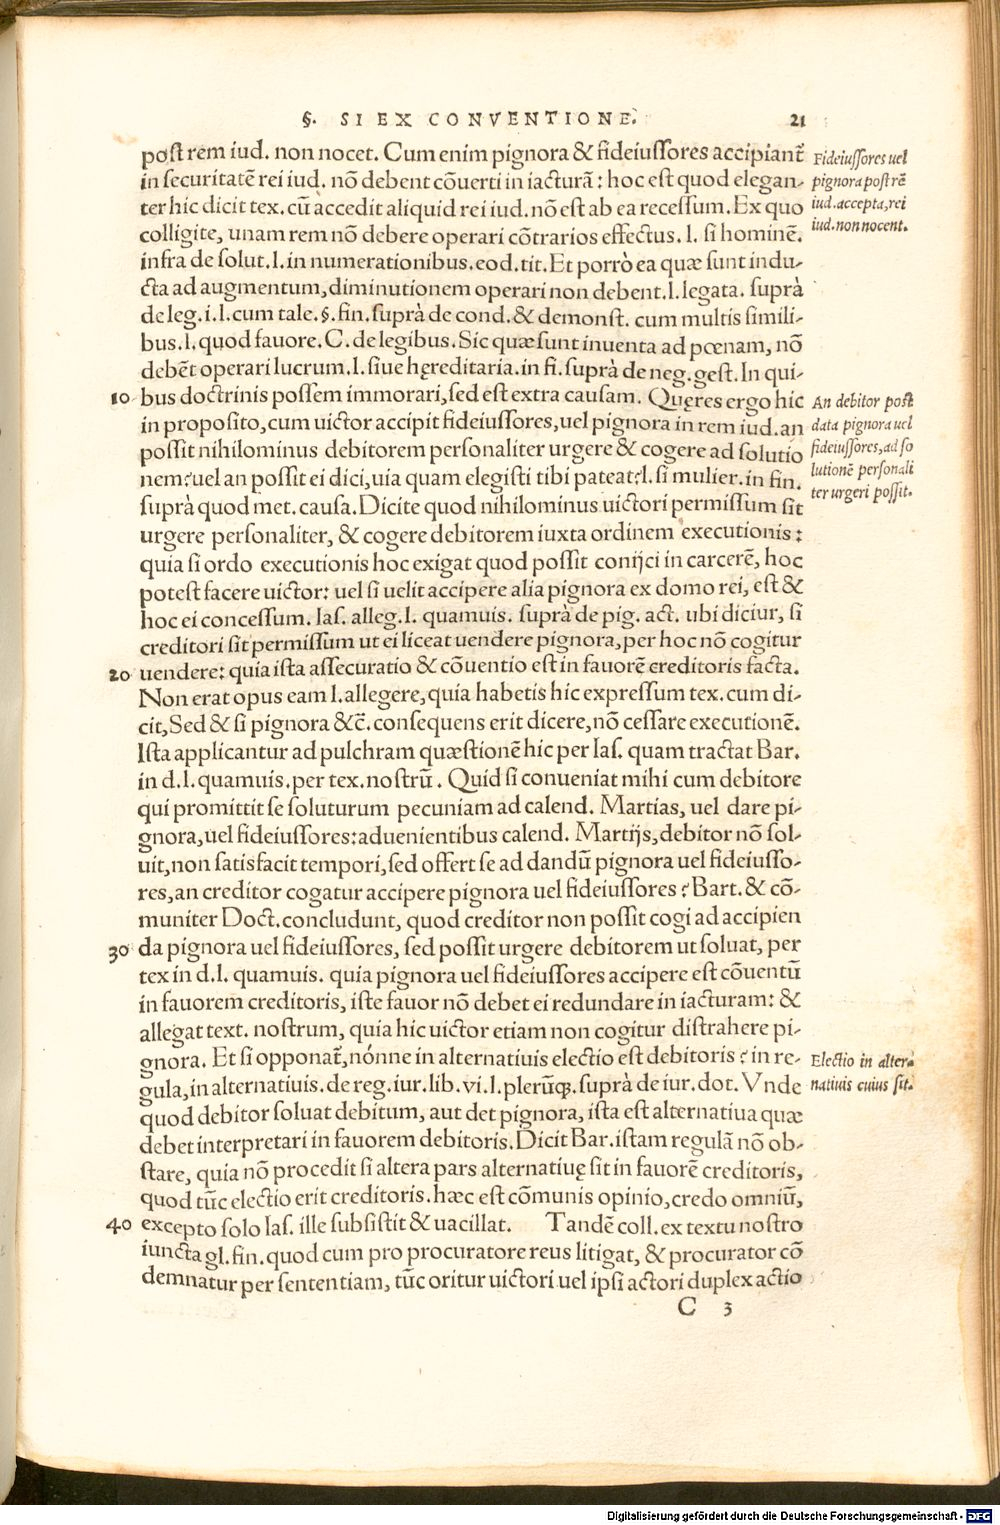 §. SI EX CONVENTIONE. 21
post rem iud. non nocet. Cum enim pignora & fideiussores accipiant̃
in securitatē rei iud. nō debent cōuerti in iacturā: hoc est quod elegan-
ter hic dicit tex. cū accedit aliquid rei iud. nō est ab ea recessum. Ex quo
colligite, unam rem nō debere operari cōtrarios effectus. l. si hominē.
infra de solut. l. in numerationibus. eod. tit. Et porrò ea quæ sunt indu-
cta ad augmentum, diminutionem operari non debent. l. legata. suprà
de leg. i. l. cum tale. §. fin. suprà de cond. & demonst. cum multis simili-
bus. l. quod fauore. C. de legibus. Sic quæ sunt inuenta ad pœnam, nō
debēt operari lucrum. l. siue hęreditaria. in fi. suprà de neg. gest. In qui-
10 bus doctrinis possem immorari, sed est extra causam. Quęres ergo hic
in proposito, cum uictor accipit fideiussores, uel pignora in rem iud. an
possit nihilominus debitorem personaliter urgere & cogere ad solutio
nem? uel an possit ei dici, uia quam elegisti tibi pateat? l. si mulier. in fin.
suprà quod met. causa. Dicite quod nihilominus uictori permissum sit
urgere personaliter, & cogere debitorem iuxta ordinem executionis:
quia si ordo executionis hoc exigat quod possit conijci in carcerē, hoc
potest facere uictor: uel si uelit accipere alia pignora ex domo rei, est &
hoc ei concessum. Ias. alleg. l. quamuis. suprà de pig. act. ubi diciur, si
creditori sit permissum ut ei liceat uendere pignora, per hoc nō cogitur
20 uendere: quia ista assecuratio & cōuentio est in fauorē creditoris facta.
Non erat opus eam l. allegere, quia habetis hic expressum tex. cum di-
cit, Sed & si pignora &c̄. consequens erit dicere, nō cessare executionē.
Ista applicantur ad pulchram quæstionē hic per Ias. quam tractat Bar.
in d. l. quamuis. per tex. nostrū. Quid si conueniat mihi cum debitore
qui promittit se soluturum pecuniam ad calend. Martias, uel dare pi-
gnora, uel fideiussores: aduenientibus calend. Martijs, debitor nō sol-
uit, non satisfacit tempori, sed offert se ad dandū pignora uel fideiusso-
res, an creditor cogatur accipere pignora uel fideiussores? Bart. & cō-
muniter Doct. concludunt, quod creditor non possit cogi ad accipien
30 da pignora uel fideiussores, sed possit urgere debitorem ut soluat, per
tex in d. l. quamuis. quia pignora uel fideiussores accipere est cōuentū
in fauorem creditoris, iste fauor nō debet ei redundare in iacturam: &
allegat text. nostrum, quia hic uictor etiam non cogitur distrahere pi-
gnora. Et si opponat̃, nónne in alternatiuis electio est debitoris? in re-
gula, in alternatiuis. de reg. iur. lib. vi. l. plerūq́. suprà de iur. dot. Vnde
quod debitor soluat debitum, aut det pignora, ista est alternatiua quæ
debet interpretari in fauorem debitoris. Dicit Bar. istam regulā nō ob-
stare, quia nō procedit si altera pars alternatiuę sit in fauorē creditoris,
quod tūc electio erit creditoris. hæc est cōmunis opinio, credo omniū,
40 excepto solo Ias. ille subsistit & uacillat. Tandē coll. ex textu nostro
iuncta gl. fin. quod cum pro procuratore reus litigat, & procurator cō
demnatur per sententiam, tūc oritur uictori uel ipsi actori duplex actio
C 3
Fideiussores uel
pignora post rē
iud. accepta, rei
iud. non nocent.
An debitor post
data pignora uel
fideiussores, ad so
lutionē personali
ter urgeri possit.
Electio in alter-
natiuis cuius sit.
Digitalisierung gefördert durch die Deutsche Forschungsgemeinschaft - DFG